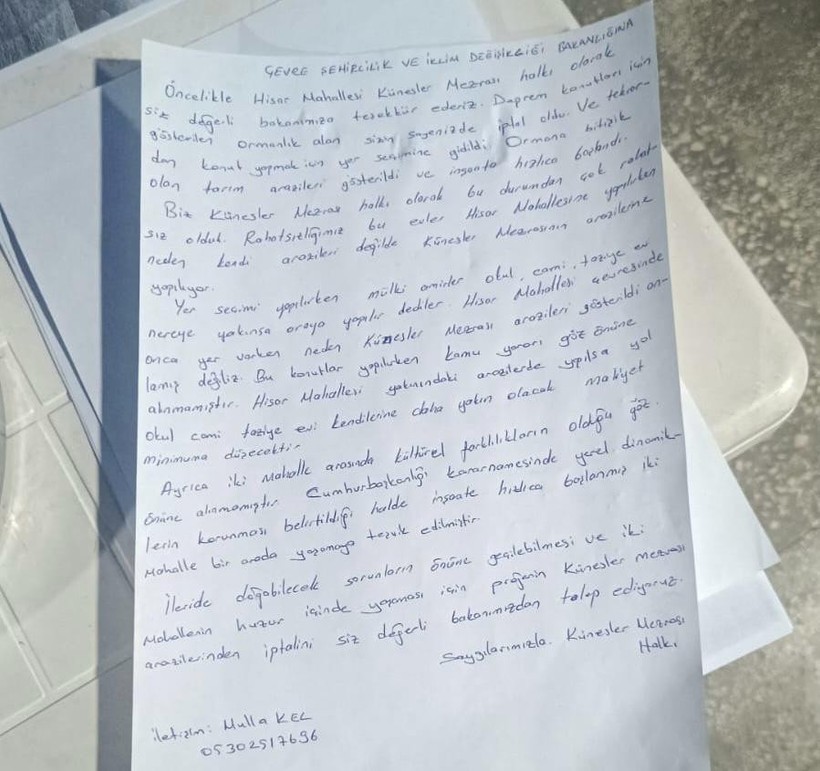 ÇEVRE ŞEHİRCİLİK VE İKLİM DEĞİŞİKLİĞİ BAKANLIĞINA
Öncelikle Hisar Mahallesi Küneşler Mezrası halkı olarak
siz değerli bakanımıza teşekkür ederiz. Deprem konutları için
gösterilen ormanlık alan sizin sayenizde iptal oldu. Ve tekrar-
dan konut yapmak için yer seçimine gidildi. Ormana bitişik
olan tarım arazileri gösterildi ve inşaata hızlıca başlandı.
Biz Küneşler Mezrası halkı olarak bu durumdan çok rahat-
sız olduk. Rahatsızlığımız bu evler Hisar Mahallesine yapılırken
neden kendi arazileri değilde Küneşler Mezrasının arazilerine
yapılıyor.
Yer seçimi yapılırken mülki amirler okul, cami, taziye evi
nereye yakınsa oraya yapılır dediler. Hisar Mahallesi çevresinde
onca yer varken neden Küneşler Mezrası arazileri gösterildi an-
lamış değiliz. Bu konutlar yapılırken kamu yararı göz önüne
alınmamıştır. Hisar Mahallesi yakınındaki arazilerde yapılsa yol
okul cami taziye evi kendilerine daha yakın olacak maliyet
minimuma düşecektir.
Ayrıca iki Mahalle arasında kültürel farklılıkların olduğu göz
önüne alınmamıştır. Cumhurbaşkanlığı kararnamesinde yerel dinamik-
lerin korunması belirtildiği halde inşaate hızlıca başlanmış iki
Mahalle bir arada yaşamaya tezvik edilmiştir.
İleride doğabilecek sorunların önüne geçilebilmesi ve iki
Mahallenin huzur içinde yaşaması için projenin Küneşler mezrası
arazilerinden iptalini siz değerli bakanımızdan talep ediyoruz.
Saygılarımızla. Küneşler Mezrası
Halkı
iletişim: Mulla KEL
05302517696